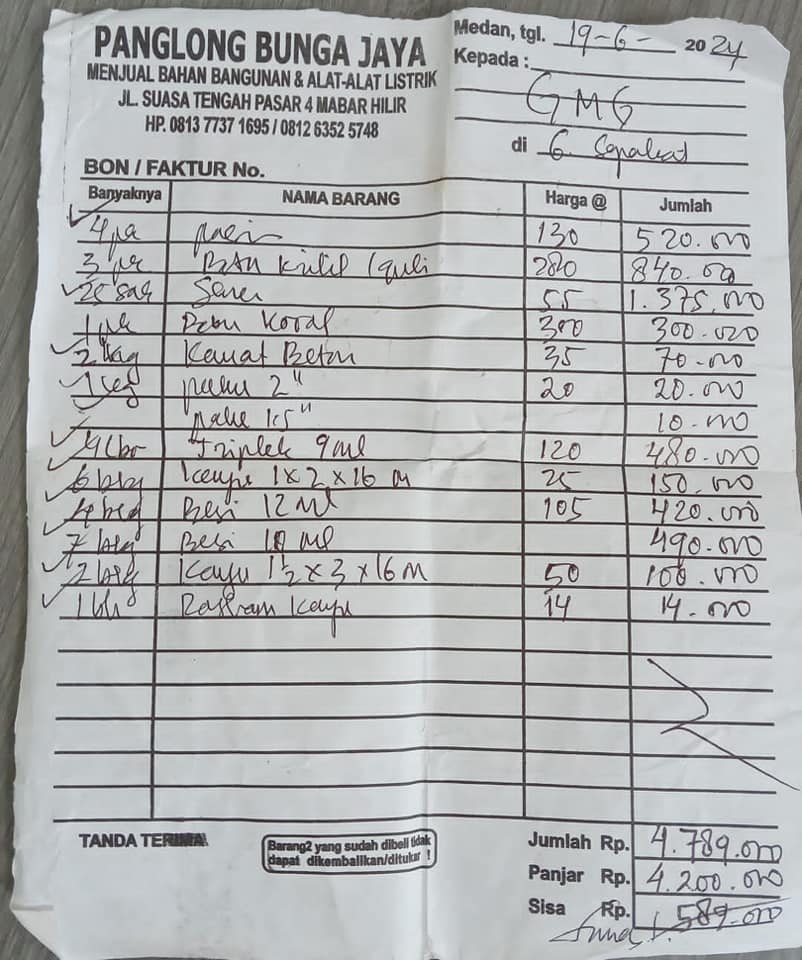 PANGLONG BUNGA JAYA
MENJUAL BAHAN BANGUNAN & ALAT-ALAT LISTRIK
JL. SUASA TENGAH PASAR 4 MABAR HILIR
HP. 0813 7737 1695 / 0812 6352 5748
Medan, tgl. 19-6- 2024
Kepada :
GMG
di G. Sepakat
BON / FAKTUR No.
Banyaknya NAMA BARANG Harga @ Jumlah
4 pasir 130 520.000
3 Batu 280 840.000
25 sak Semen 55 1.375.000
1 Koral 300 300.000
2 kg Kawat Beton 35 70.000
1 kg paku 2" 20 20.000
paku 1.5" 10.000
4 lbr Triplek 9 ml 120 480.000
6 btg Kayu 1x2x16 M 25 150.000
4 btg Besi 12 ml 105 420.000
7 btg Besi 10 ml 490.000
2 btg Kayu 1½ x 3 x 16 M 50 100.000
1 bh Kayu 14 14.000
TANDA TERIMA
Barang2 yang sudah dibeli tidak
dapat dikembalikan/ditukar !
Jumlah Rp. 4.789.000
Panjar Rp. 4.200.000
Sisa Rp. 589.000